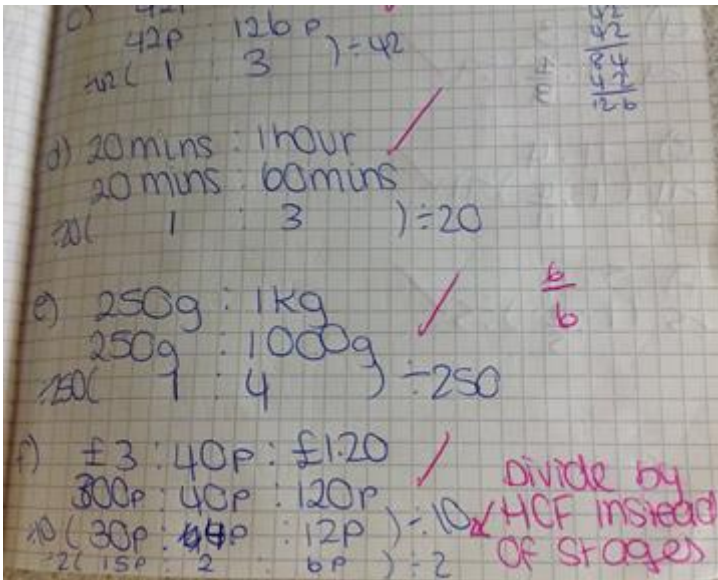 c)
42p : 126p
÷42( 1 : 3 )÷42
42
42
84
42
126
d) 20mins : 1hour
20mins : 60mins
÷20( 1 : 3 )÷20
e) 250g : 1kg
250g : 1000g
÷250( 1 : 4 )÷250
6
6
f) £3 : 40p : £1.20
300p : 40p : 120p
÷10 ( 30p : 4p : 12p ) ÷10
÷2 ( 15p : 2 : 6p ) ÷2
Divide by
HCF instead
of stages